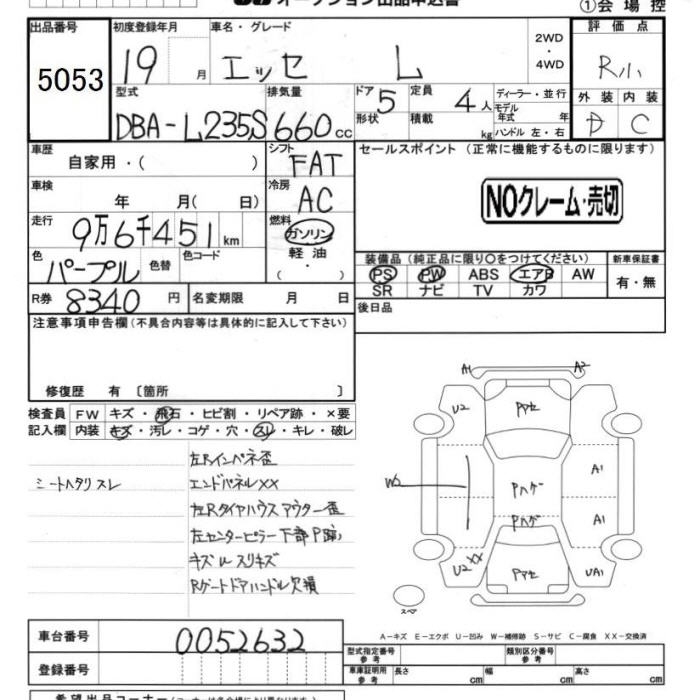 オークション出品申込書
①会場控
出品番号
5053
初度登録年月
19 月
車名・グレード
エッセ L
2WD
・
4WD
評価点
R小
型式
DBA-L235S
排気量
660 cc
ドア 5
形状
定員 4人
積載 kg
ディーラー・並行
モデル
年式 年
ハンドル 左・右
外装 内装
D C
車歴
自家用・( )
シフト
FAT
セールスポイント (正常に機能するものに限ります)
NOクレーム・売切
車検
年 月( 日)
冷房
AC
走行
9万6千451km
燃料
ガソリン
軽油
( ・ )
色
パープル
色替
色コード
装備品 (純正品に限り○をつけてください)
新車保証書
PS PW ABS エアB AW
SR ナビ TV カワ
有・無
R券 8340 円
名変期限 月 日
後日品
注意事項申告欄(不具合内容等は具体的に記入して下さい)
修復歴 有 〔箇所 〕
検査員 FW キズ・飛石・ヒビ割・リペア跡・×要
記入欄 内装 キズ・汚レ・コゲ・穴・スレ・キレ・破レ
左Rインパネ歪
シートヘタリ スレ エンドパネルXX
左Rタイヤハウス アウター歪
左センターピラー下部P跡
キズ凹スリキズ
Rゲートドアハンドル欠損
A1 A2
U2 Pマセ
A1
W2 Pハゲ
Pハゲ A1
U2 XX Pマセ UA1
スペア
A-キズ E-エクボ U-凹み W-補修跡 S-サビ C-腐食 XX-交換済
車台番号 0052632
登録番号
型式指定番号
参考
類別区分番号
参考
車庫証明用
参考
長さ cm 幅 cm 高さ cm
希望出品コーナー